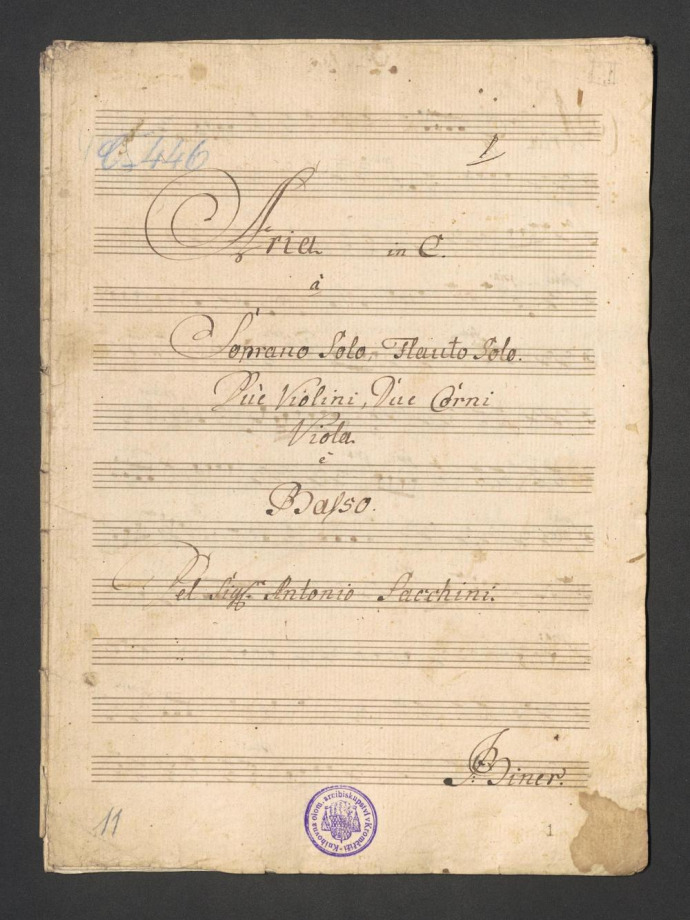 C 446
1
Aria in C.
à
Soprano Solo, Flauto Solo.
Duè Violini, Due Corni
Viola
è
Basso.
Del Sigr. Antonio Sacchini.
Biner.
Knihovna olom. arcibiskupství v Kroměříži
11
1